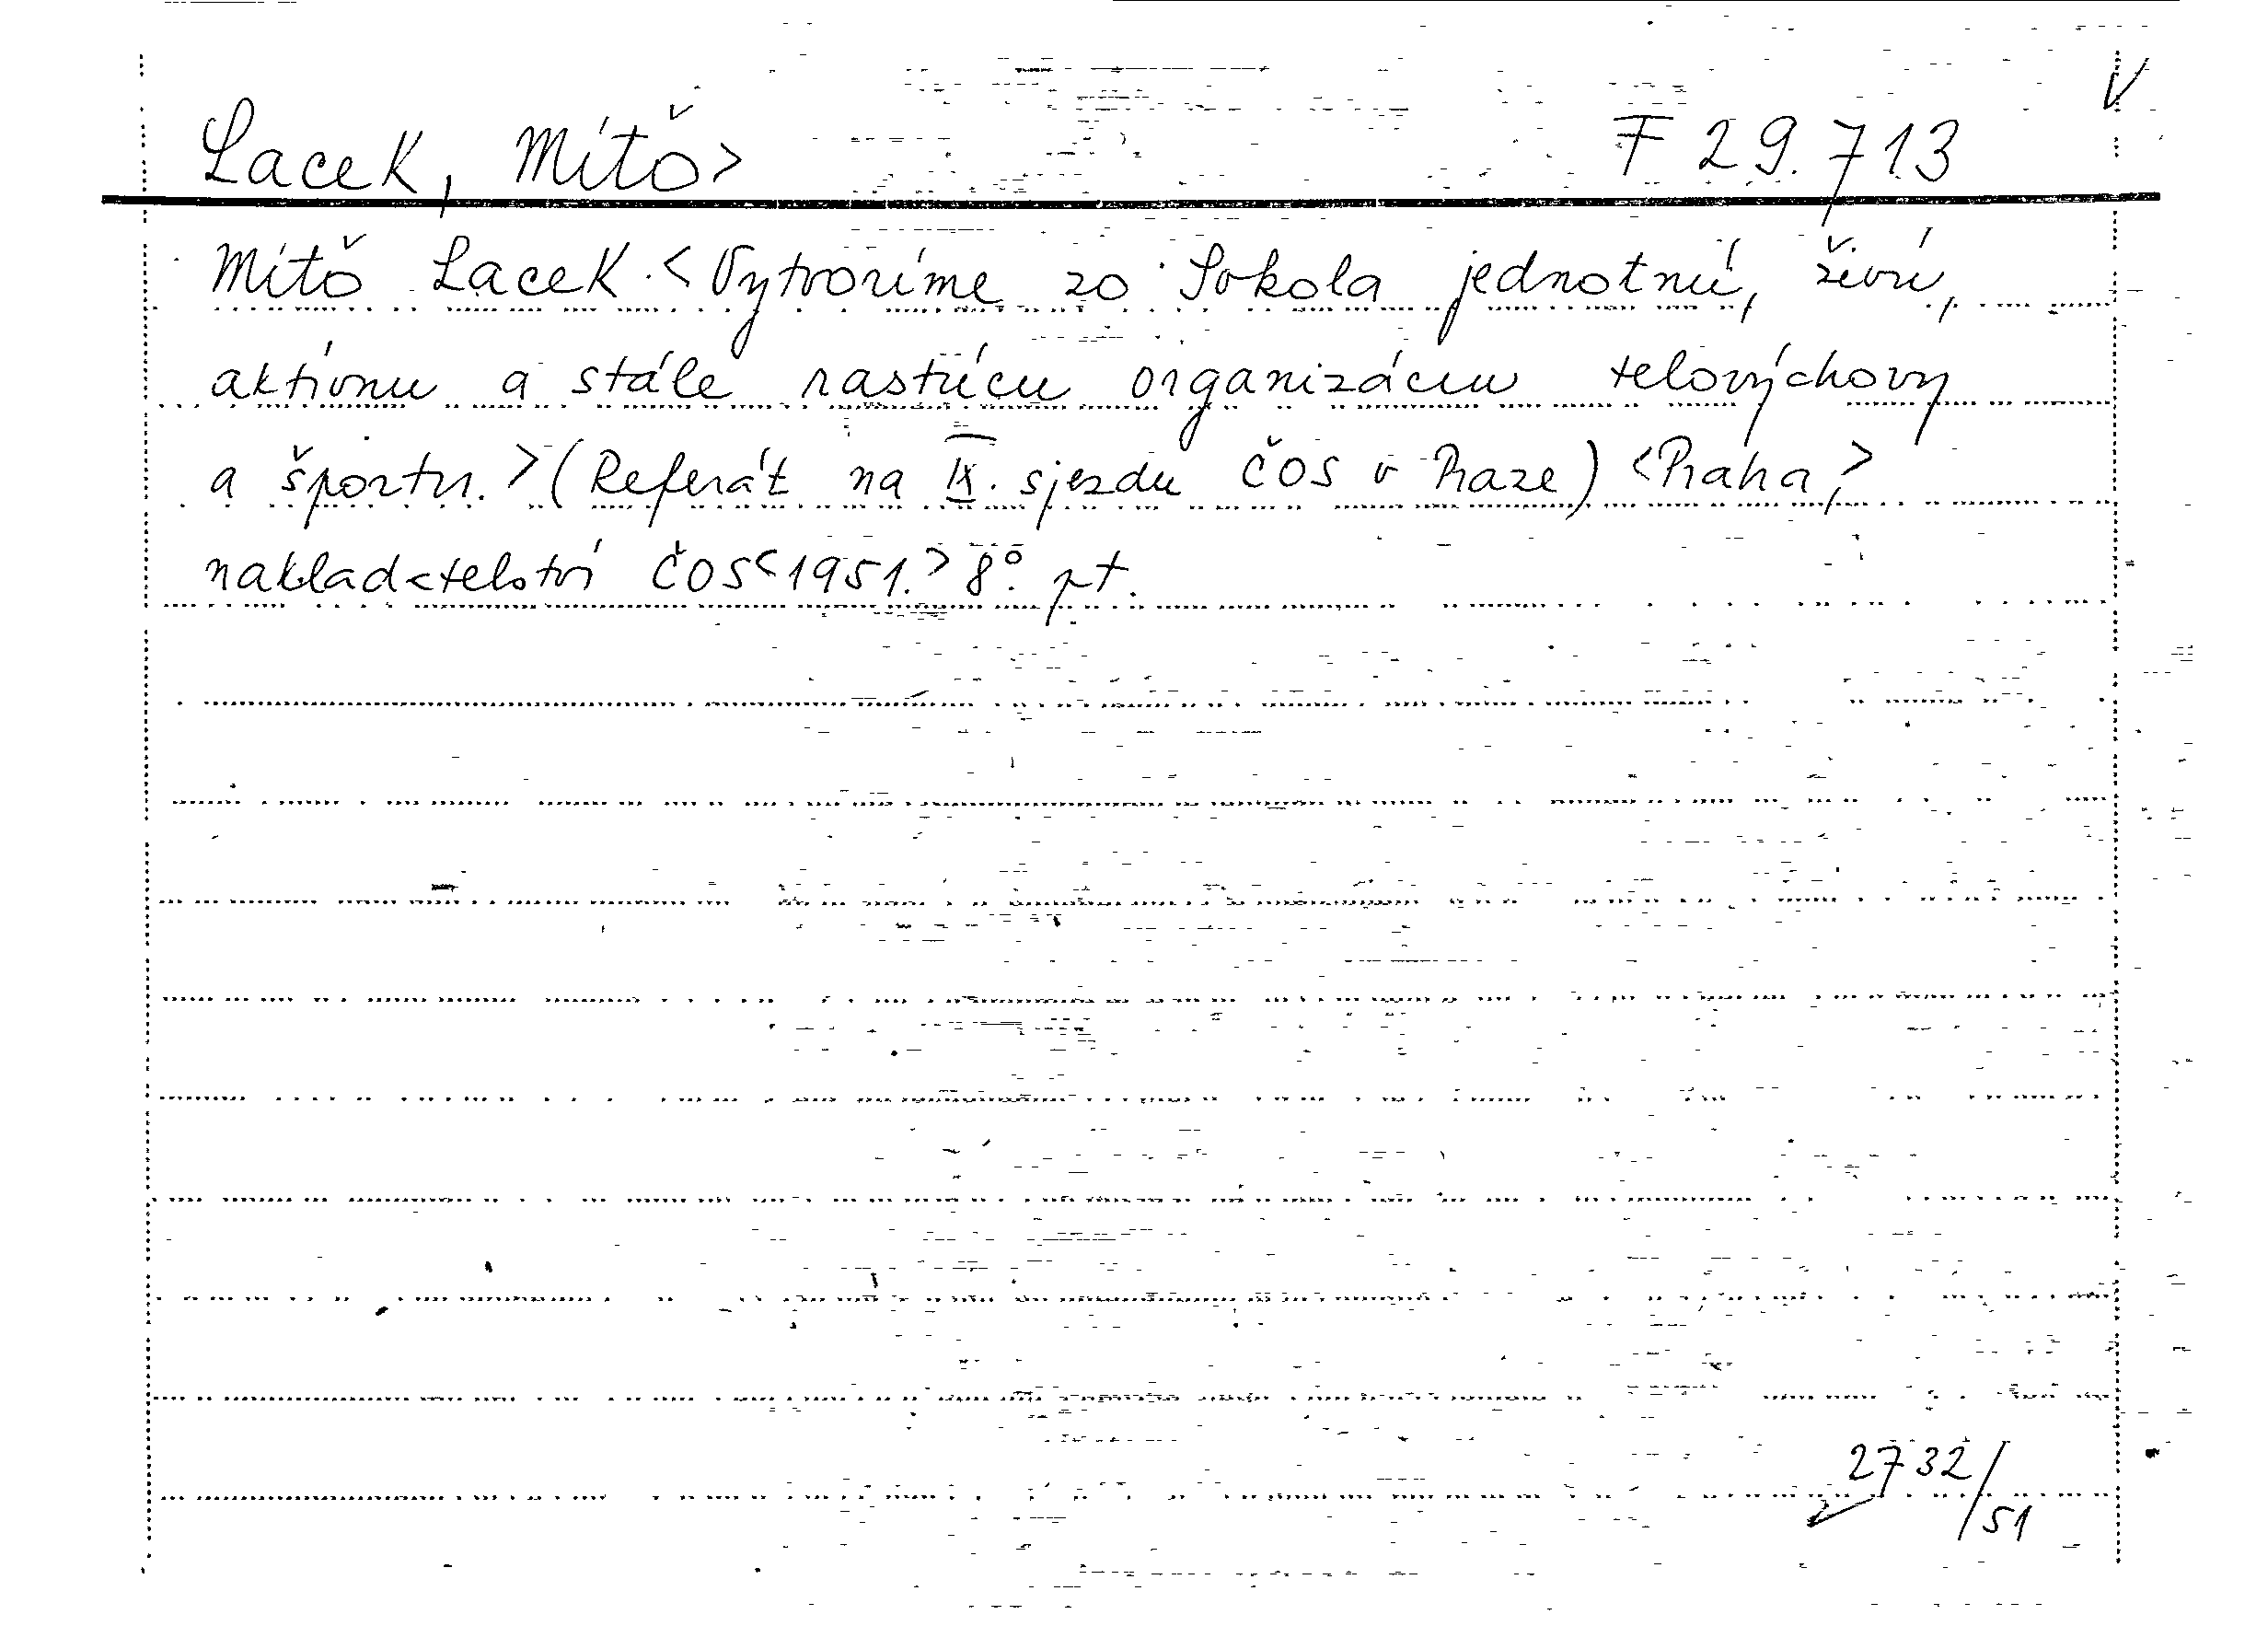 V
Lacek, Mítǒ> F 29.713
Mitǒ Lacek.<Vytvoríme zo Sokola jednotnú, živú,
aktívnu a stále rastúcu organizáciu telovýchovy
a športu.>(Referát na IX. sjezdu ČOS v Praze) <Praha,>
naklad<telství ČOS<1951.> 8°. pt.
2732/51